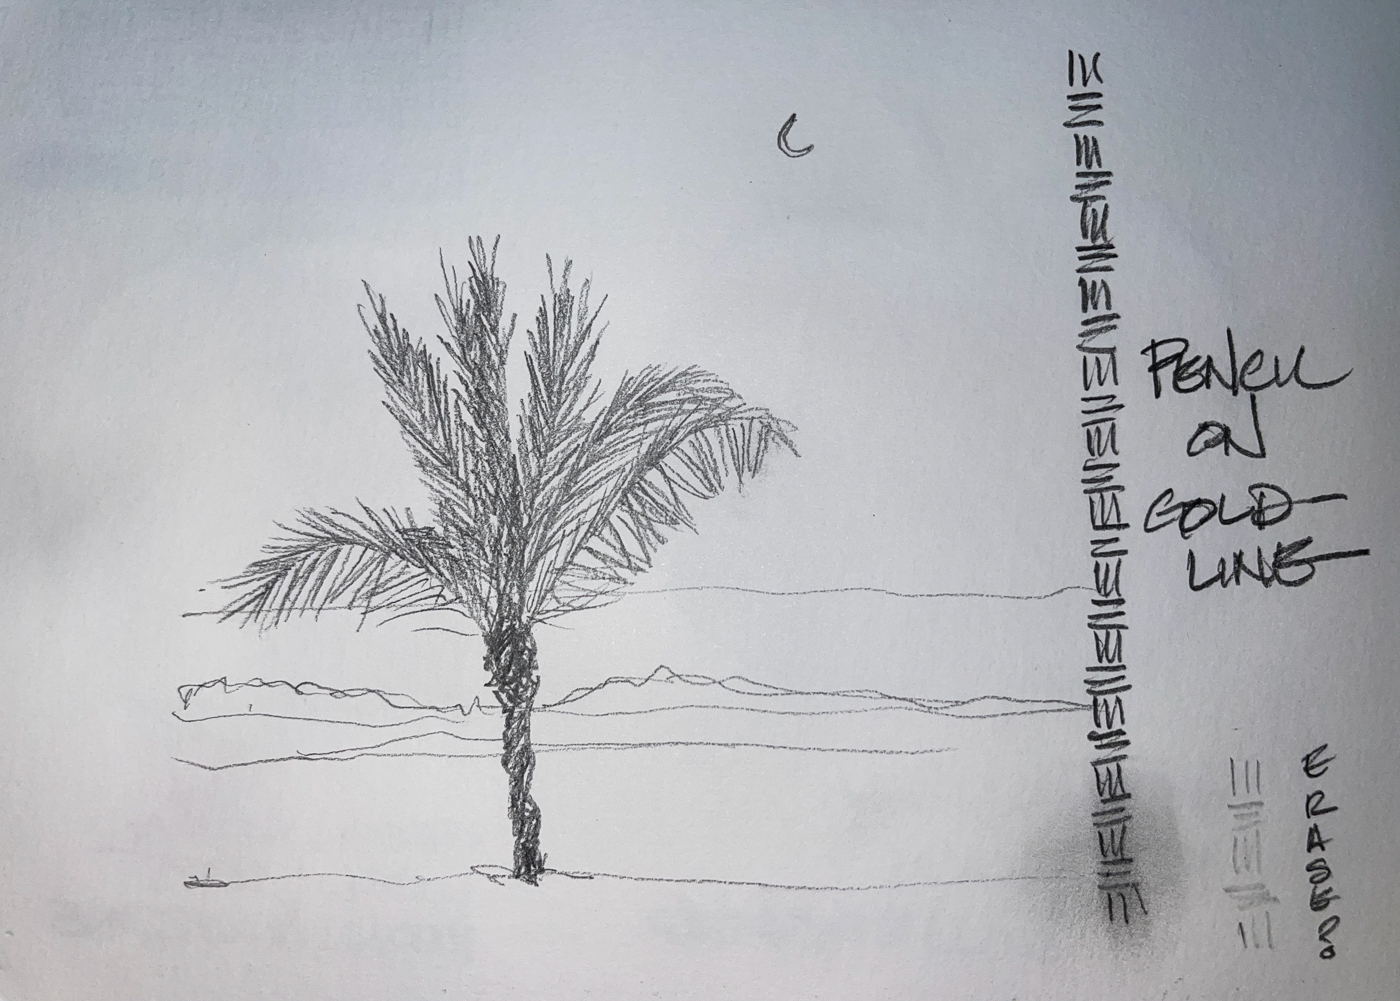 PENCIL
ON
GOLD-
LINE
ERASE?